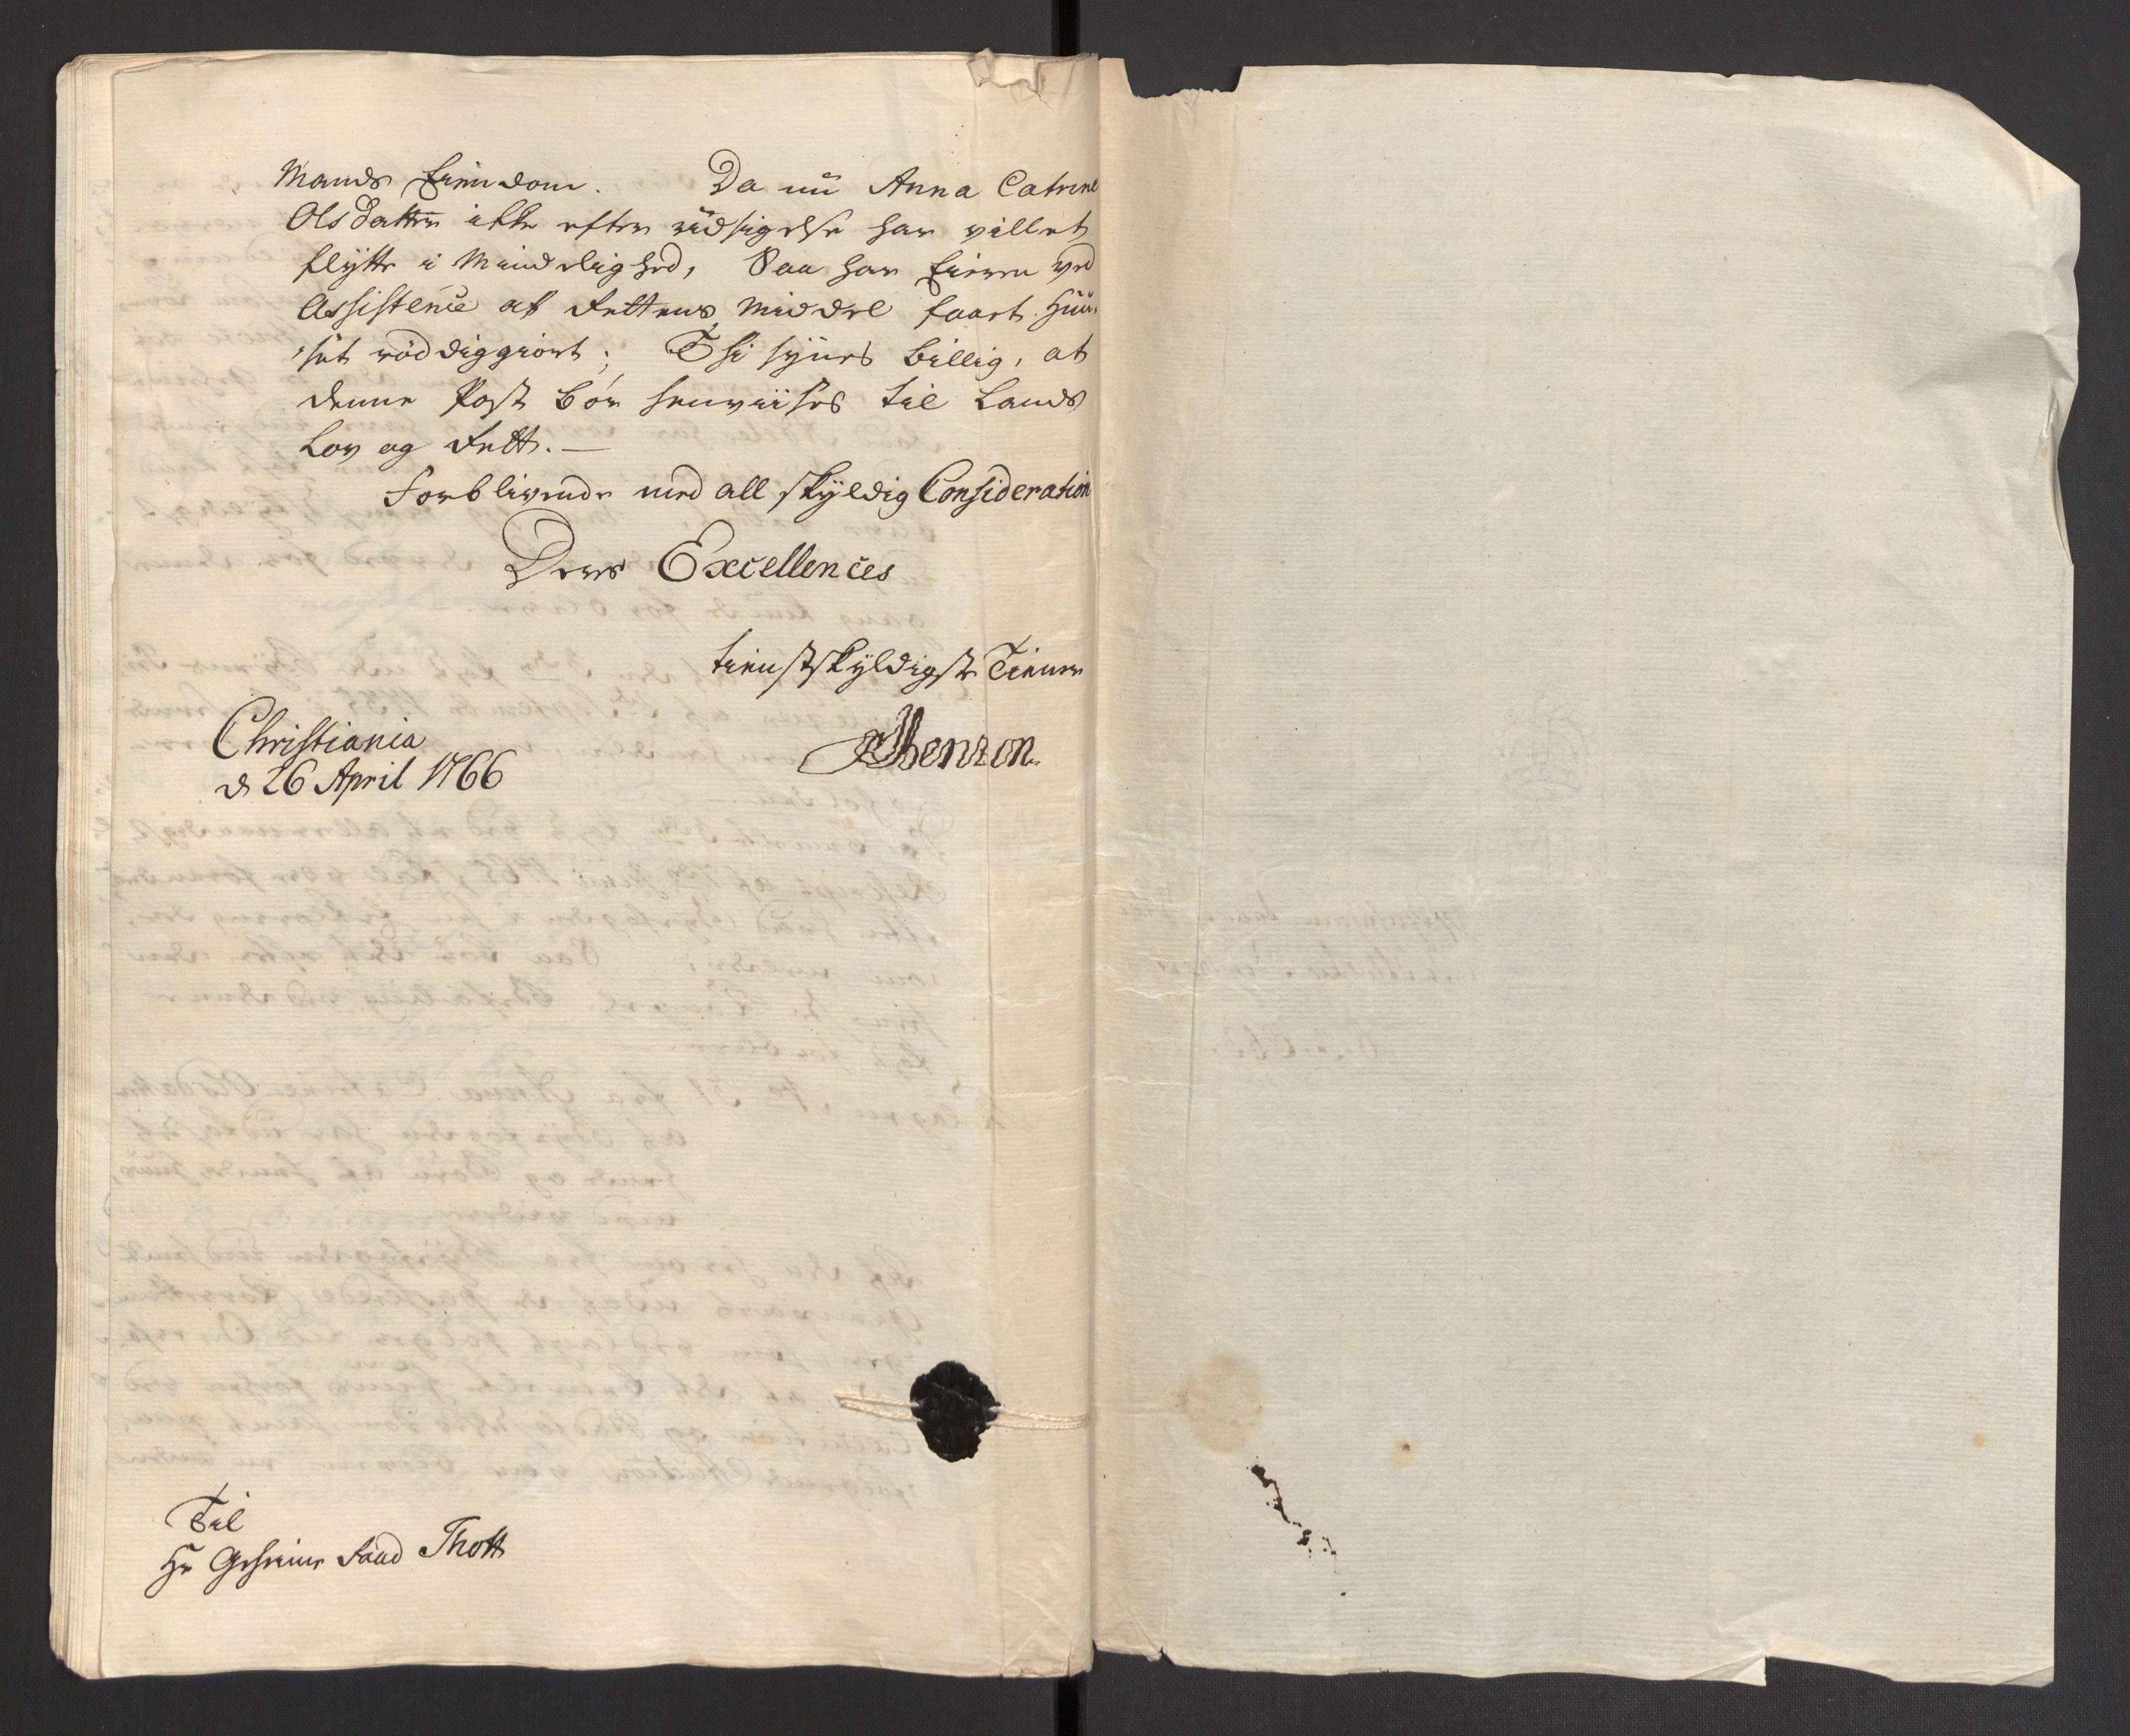 Mands Eiendom. Da nu Anna Catrine
Olsdatter ikke efter udsigelse har villet
flytte i Mindelighed, Saa har Eieren ved
Assistence af Rettens Middel faaet Huu-
set röddiggiort; Thi synes billig, at
denne Post bör henviises til Lands
Lov og Rett. —
Forblivende med all skyldig Consideration
Deres Excellences
tienstskyldigste Tiener
JBenzon
Christiania
d 26 April 1766
Til
Hr Geheime Raad Thott